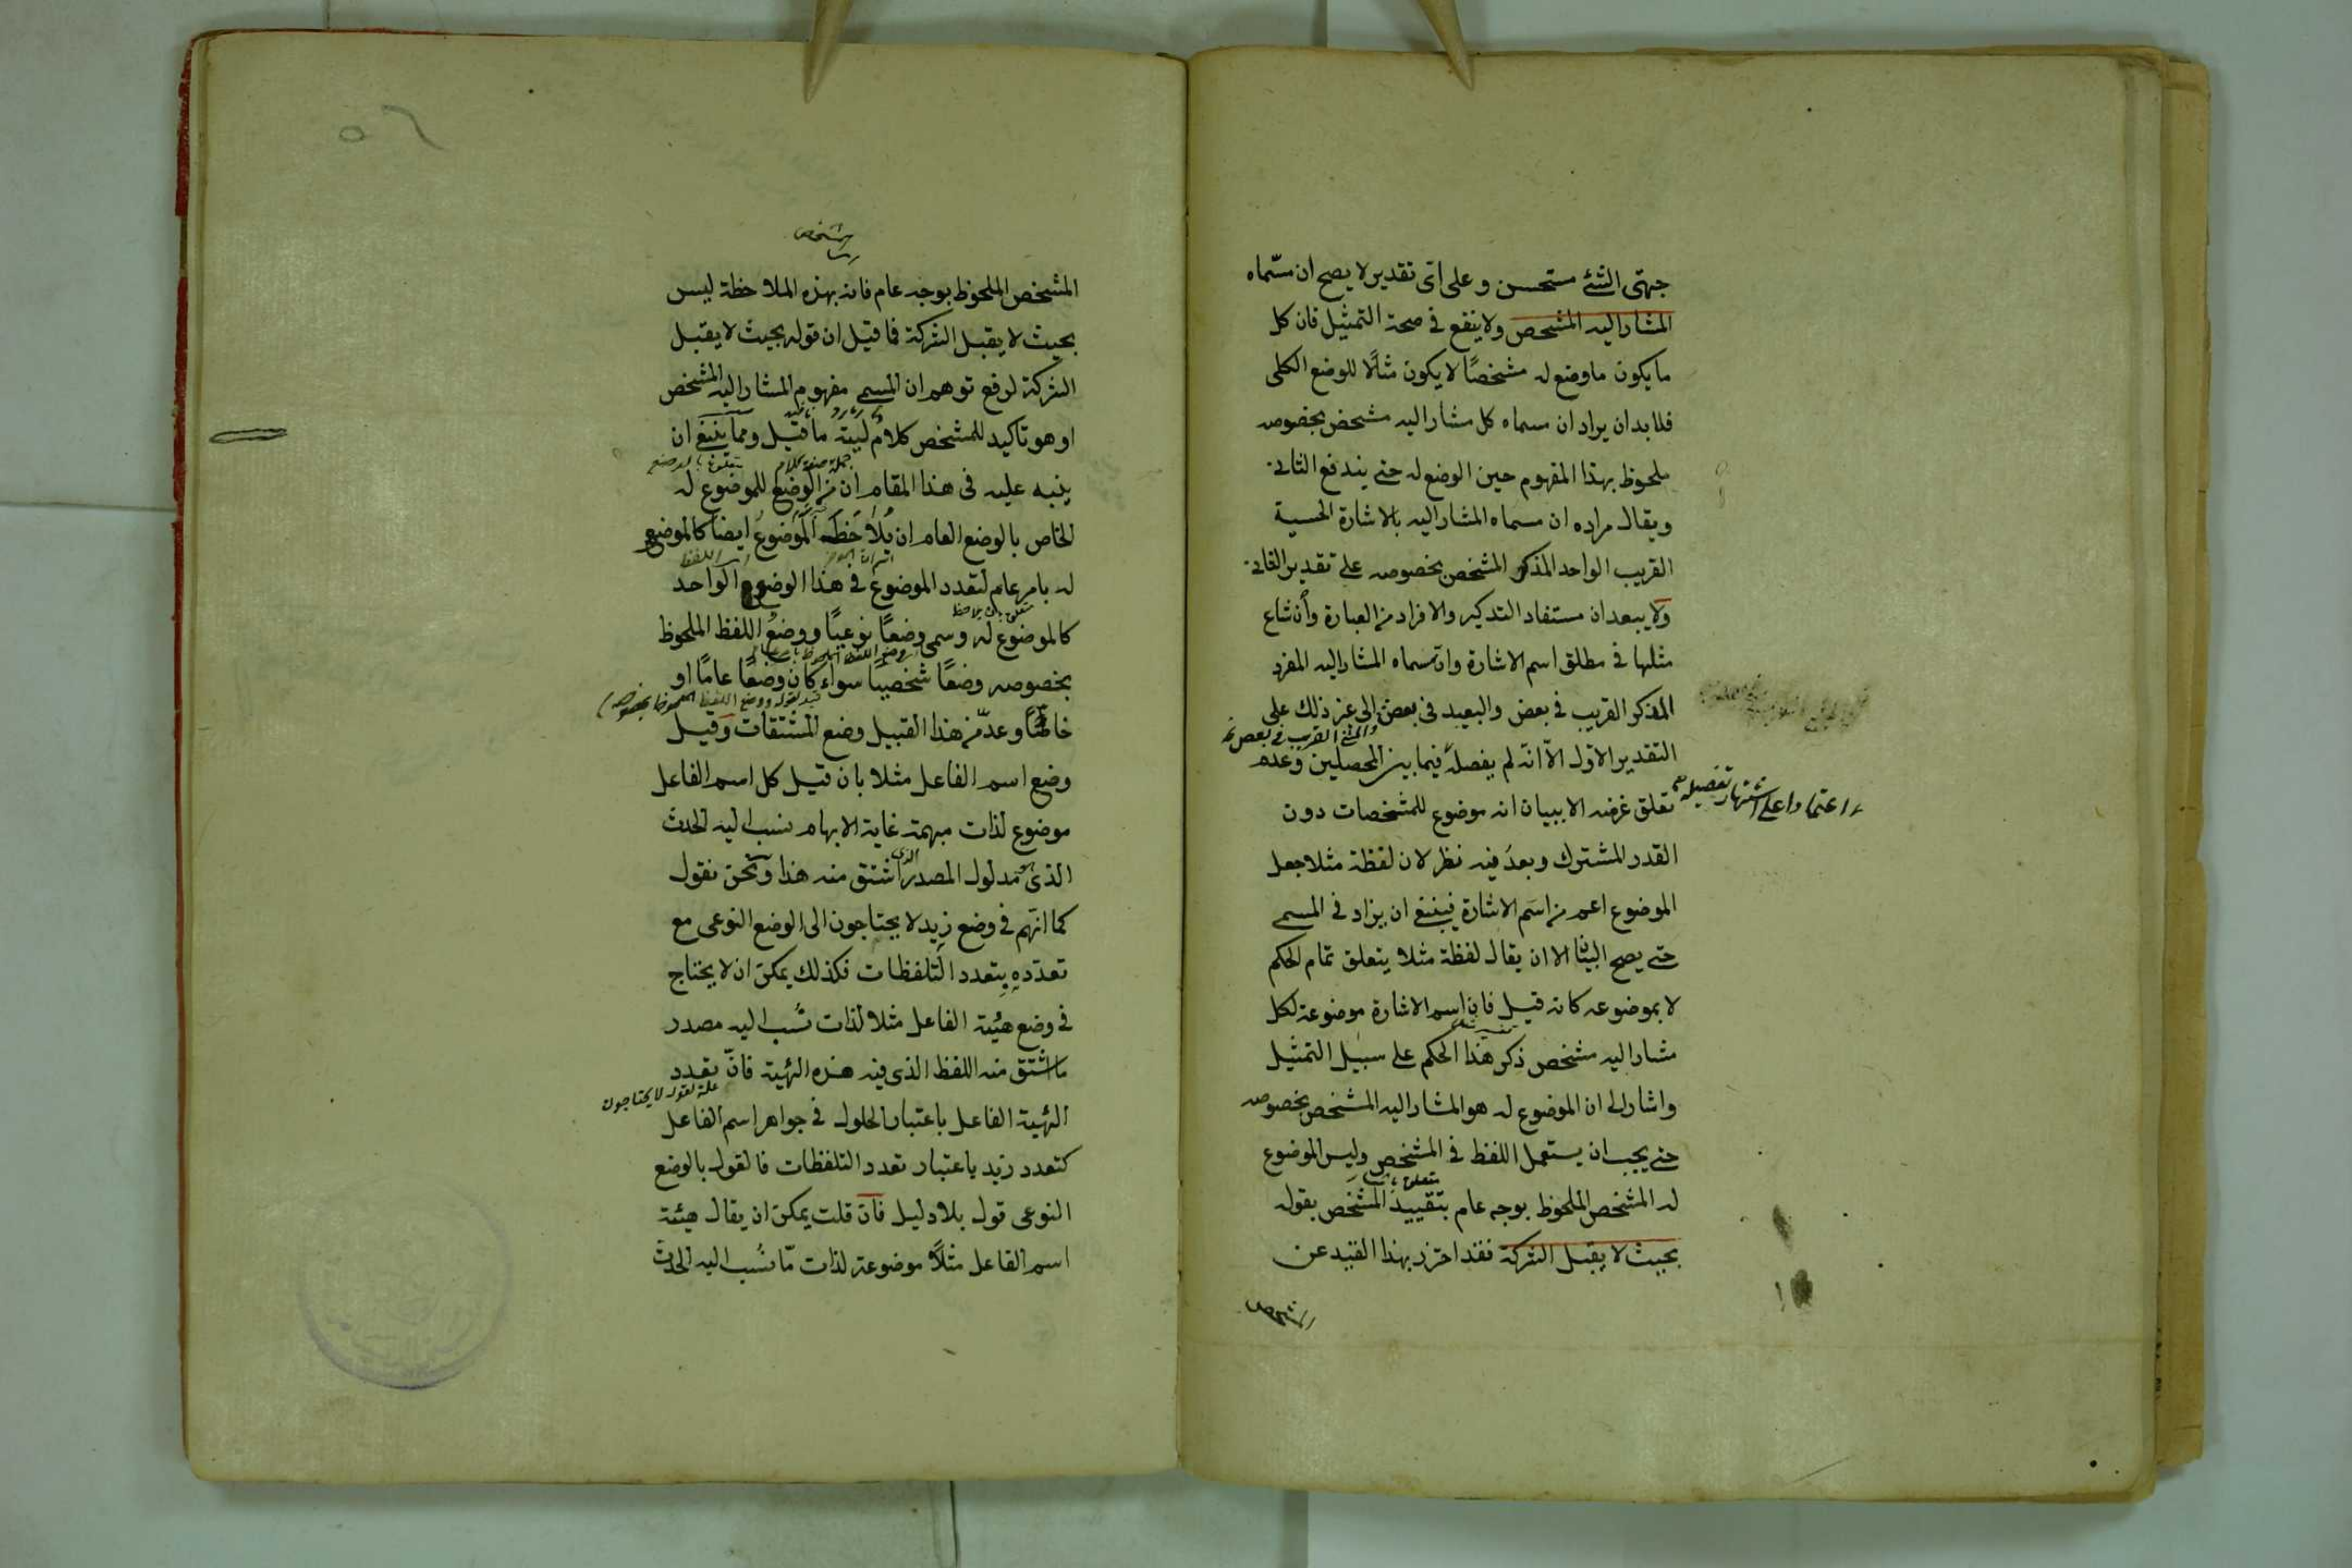 جهتى الشئ مستحسن وعلى اى تقدير لا يصح ان مسماه
المشار اليه المشخص ولا ينفع فى صحة التمثيل فان كل
ما يكون ما وضع له مشخصًا لا يكون مثالًا للوضع الكلى
فلا بد ان يراد ان مسماه كل مشار اليه مشخص بخصوصه
ملحوظ بهذا المفهوم حين الوضع له حتى يندفع الثانى
ويقال مراده ان مسماه المشار اليه بالاشارة الحسية
القريب الواحد المذكر المشخص بخصوصه على تقدير الثانى
ولا يبعد ان مستفاد التذكير والافراد من العبارة وان شاع
مثلها فى مطلق اسم الاشارة وان مسماه المشار اليه المفرد
المذكر القريب فى بعض والبعيد فى بعض الى غير ذلك على
والمثنى القريب فى بعض
التقدير الاول الّا انّه لم يفصله فيما بين المحصلين وعدم
اعتمادا على اشتهار تفصيله
تعلق غرضه الا ببيان انه موضوع للمشخصات دون
القدر المشترك وبعدُ فيه نظر لان لفظة مثلا جعل
الموضوع اعم من اسم الاشارة فينبغى ان يزاد فى المسمى
حتى يصح البيان الا ان يقال لفظة مثلا يتعلق تمام الحكم
لا بموضوعه كانه قيل فان اسم الاشارة موضوعة لكل
مشار اليه مشخص ذكر هذا الحكم على سبيل التمثيل
واشار الى ان الموضوع له هو المشار اليه المشخص بخصوصه
حتى يجب ان يستعمل اللفظ فى المشخص وليس الموضوع
له المشخص الملحوظ بوجه عام بتقييد المشخص بقوله
بحيث لا يقبل الشركة فقد احترز بهذا القيد عن
المشخص
المشخص الملحوظ بوجه عام فانه بهذه الملاحظة ليس
بحيث لا يقبل الشركة فما قيل ان قوله بحيث لا يقبل
الشركة لرفع توهم ان المسمى مفهوم المشار اليه المشخص
او هو تاكيد للمشخص كلام ليته ما قيل ومما ينبغى ان
جملة صفة كلام
ينبه عليه فى هذا المقام ان من الوضع للموضوع له
الخاص بالوضع العام ان يُلاحَظَ الموضوعُ ايضًا كالموضوع
له بامر عام لتعدد الموضوع فى هذا الوضع الواحد
كالموضوع له وسمى وضعًا نوعيًا ووضعُ اللفظ الملحوظ
بخصوصه وضعًا شخصيًا سواء كان وضعًا عامًا او
قيد لقوله ووضع اللفظ الملحوظ بخصوصه
خاصًّا وعدّ من هذا القبيل وضع المشتقات وقيل
وضع اسم الفاعل مثلا بان قيل كل اسم الفاعل
موضوع لذات مبهمة غاية الابهام نسب اليه الحدث
الذى هو مدلول المصدر الذى اشتق منه هذا ونحن نقول
كما انّهم فى وضع زيد لا يحتاجون الى الوضع النوعى مع
تعدّده بتعدد التلفظات فكذلك يمكن ان لا يحتاج
فى وضع هيئة الفاعل مثلا لذات نُسب اليه مصدر
ما اشتق منه اللفظ الذى فيه هذه الهيئة فانّ تعدد
علة لقوله لا يحتاجون
الهيئة الفاعل باعتبار الحلول فى جواهر اسم الفاعل
كتعدد زيد باعتبار تعدد التلفظات فالقول بالوضع
النوعى قول بلا دليل فان قلت يمكن ان يقال هيئة
اسم الفاعل مثلًا موضوعة لذات مّا نُسب اليه الحدث